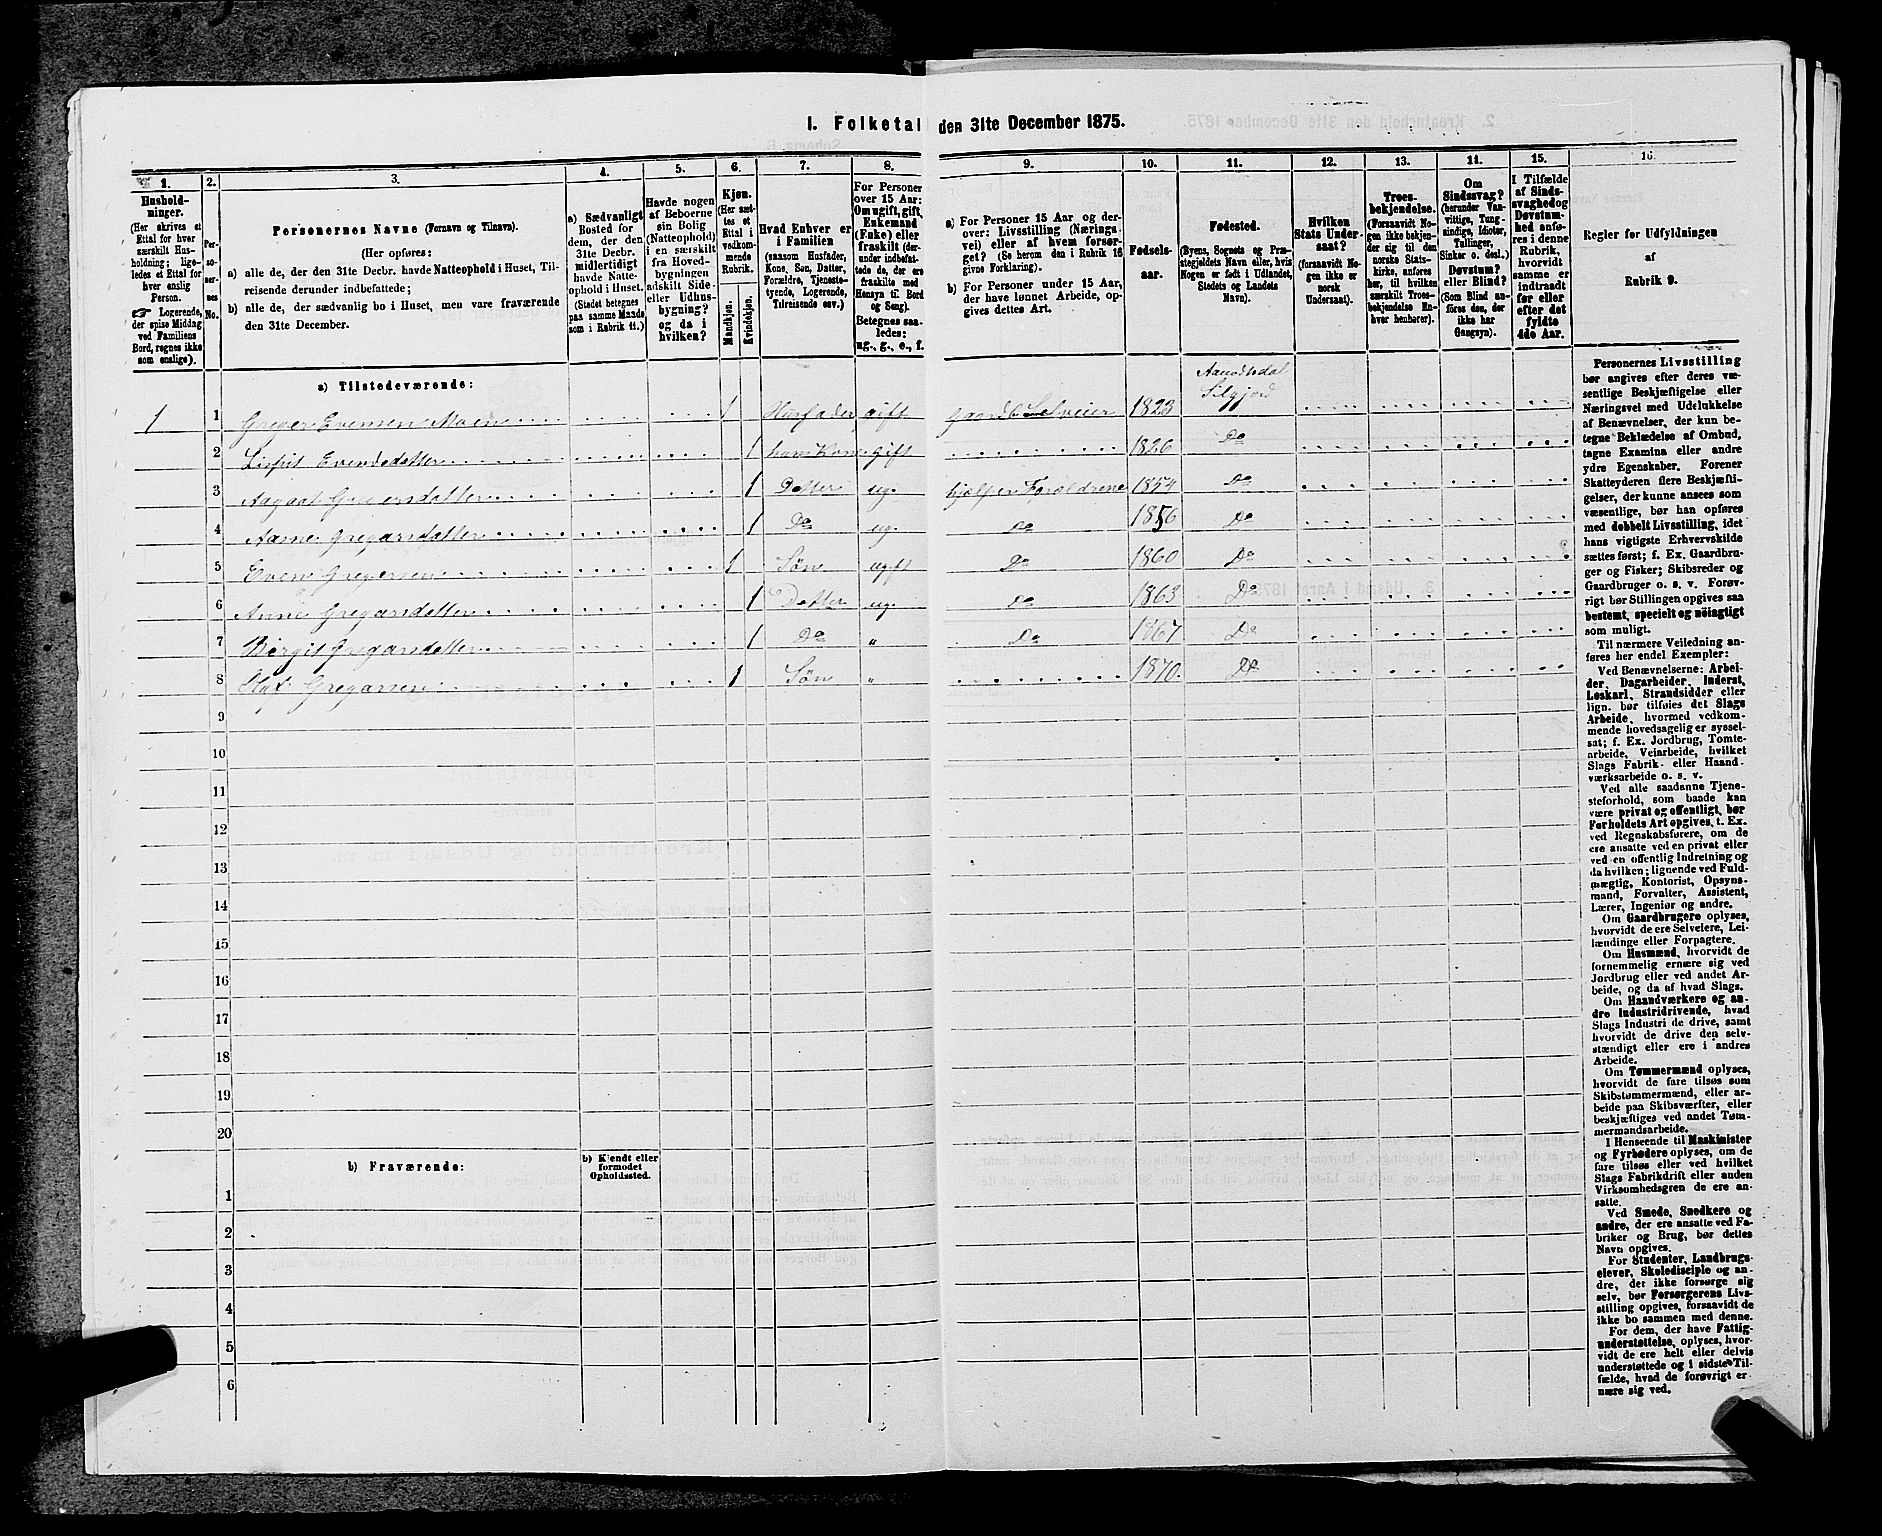 I. Folketal den 31te December 1875.
1. 2. 3. 4. 5. 6. 7. 8. 9. 10. 11. 12. 13. 14. 15. 16.
Hushold-
ninger.
(Her skrives et
Ettal for hver
særskilt Hus-
holdning; lige-
ledes et Ettal for
hver enslig
Person.
☞ Logerende,
der spise Middag
ved Familiens
Bord, regnes ikke
som enslige).
Per-
so-
ner-
nes
No.
Personernes Navne (Fornavn og Tilnavn).
(Her opføres:
a) alle de, der den 31te Decbr. havde Natteophold i Huset, Til-
reisende derunder indbefattede;
b) alle de, der sædvanlig bo i Huset, men vare fraværende
den 31te December.
a) Sædvanligt
Bosted for
dem, der den
31te Decbr.
midlertidigt
havde Natte-
ophold i Huset.
(Stedet betegnes
paa samme Maade
som i Rubrik 11.)
Havde nogen
af Beboerne
sin Bolig
(Natteophold)
i en særskilt
fra Hoved-
bygningen
adskilt Side-
eller Udhus-
bygning?
og da i
hvilken?
Kjøn.
(Her sæt-
tes et
Ettal i
vedkom-
mende
Rubrik.
Mandkjøn.
Kvindekjøn.
Hvad Enhver er
i Familien
(saasom Husfader,
Kone, Søn, Datter,
Forældre, Tjeneste-
tyende, Logerende,
Tilreisende osv.)
For Personer
over 15 Aar:
Om ugift, gift,
Enkemand
(Enke) eller
fraskilt (der-
under indbefat-
tede de, der ere
fraskilte med
Hensyn til Bord
og Seng).
Betegnes saa-
ledes:
ug., g., e., f.
a) For Personer 15 Aar og der-
over: Livsstilling (Nærings-
vei) eller af hvem forsør-
get? (Se herom den i Rubrik 16
givne Forklaring).
b) For Personer under 15 Aar,
der have lønnet Arbeide, op-
gives dettes Art.
Fødsels-
aar.
Fødested.
(Byens, Sognets og Præ-
stegjeldets Navn eller, hvis
Nogen er født i Udlandet,
Stedets og Landets
Navn).
Hvilken
Stats Under-
saat?
(forsaavidt No-
gen ikke er
norsk
Undersaat).
Troes-
bekjendelse.
(Forsaavidt No-
gen ikke bekjen-
der sig til den
norske Stats-
kirke, anføres
her, til hvilken
særskilt Troes-
bekjendelse En-
hver henhører).
Om
Sindssvag?
(herunder Van-
vittige, Tung-
sindige, Idioter,
Tullinger,
Sinker o. desl.)
Døvstum?
eller Blind?
(Som Blind an-
føres den, der
ikke har
Gangsyn).
I Tilfælde
af Sinds-
svaghed og
Døvstum-
hed anfø-
res i denne
Rubrik,
hvorvidt
samme er
indtraadt
før eller
efter det
fyldte
4de Aar.
Regler for Udfyldningen
af
Rubrik 9.
a) Tilstedeværende:
1 1 Greger Evensen Moen 1 Husfader gift gaardb Selveier 1823 Silgjord
2 Lispit Evendsdatter 1 hans Kone gift 1826 Do
3 Aagaat Gregersdatter 1 Datter ug. hjælper Forældrene 1854 Do
4 Aanne Gregarsdatter 1 Do ug. do 1856 Do
5 Even Gregersen 1 Søn ugift Do 1860 Do
6 Anne Gregarsdatter 1 Datter ug. do 1863 Do
7 Birgit Gregarsdatter 1 Do „ Do 1867 Do
8 Gregarsen 1 Søn „ 1870. Do
9
10
11
12
13
14
15
16
17
18
19
20
b) Fraværende:
b) Kjendt eller
formodet
Opholdssted.
1
2
3
4
5
6
Personernes Livsstilling
bør angives efter deres væ-
sentlige Beskjæftigelse eller
Næringsvei med Udelukkelse
af Benævnelser, der kun be-
tegne Beklædelse af Ombud,
tagne Examina eller andre
ydre Egenskaber. Forener
Skatteyderen flere Beskjæfti-
gelser, der kunne ansees som
væsentlige, bør han opføres
med dobbelt Livsstilling, idet
hans vigtigste Erhvervskilde
sættes først; f. Ex. Gaardbru-
ger og Fisker; Skibsreder og
Gaardbruger o. s. v. Forøv-
rigt bør Stillingen opgives saa
bestemt, specielt og nöiagtigt
som muligt.
Til nærmere Veiledning an-
føres her endel Exempler:
Ved Benævnelserne: Arbei-
der, Dagarbeider, Inderst,
Løskarl, Strandsidder eller
lign. bør tilføies det Slags
Arbeide, hvormed vedkom-
mende hovedsagelig er syssel-
sat; f. Ex. Jordbrug, Tomte-
arbeide, Veiarbeide, hvilket
Slags Fabrik- eller Haand-
værksarbeide o. s. v.
Ved alle saadanne Tjene-
steforhold, som baade kan
være privat og offentligt, bør
Forholdets Art opgives, t. Ex.
ved Regnskabsførere, om de
ere ansatte ved en privat eller
ved en offentlig Indretning og
da hvilken; lignende ved Fuld-
mægtig, Kontorist, Opsyns-
mand, Forvalter, Assistent,
Lærer, Ingeniør og andre.
Om Gaardbrugere oplyses,
hvorvidt de ere Selveiere, Lei-
lændinge eller Forpagtere.
Om Husmænd, hvorvidt de
fornemmelig ernære sig ved
Jordbrug eller ved andet Ar-
beide, og da af hvad Slags.
Om Haandværkere og an-
dre Industridrivende, hvad
Slags Industri de drive, samt
hvorvidt de drive den selv-
stændigt eller ere i andres
Arbeide.
Om Tømmermænd oplyses,
hvorvidt de fare tilsøs som
Skibstømmermænd, eller ar-
beide paa Skibsværfter, eller
beskjæftiges ved andet Tøm-
mermandsarbeide.
I Henseende til Maskinister
og Fyrbødere oplyses, om de
fare tilsøs eller ved hvilket
Slags Fabrikdrift eller anden
Virksomhedsgren de ere an-
satte.
Ved Smede, Snedkere og
andre, der ere ansatte ved Fa-
briker og Brug, bør dettes
Navn opgives.
For Studenter, Landbrugs-
elever, Skoledisciple og an-
dre, der ikke forsørge sig
selv, bør Forsørgerens Livs-
stilling opgives, forsaavidt de
ikke bo sammen med denne.
For dem, der have Fattig-
understøttelse, oplyses, hvor-
vidt de ere helt eller delvis
understøttede og i sidste Til-
fælde, hvad de forøvrigt er-
nære sig ved.